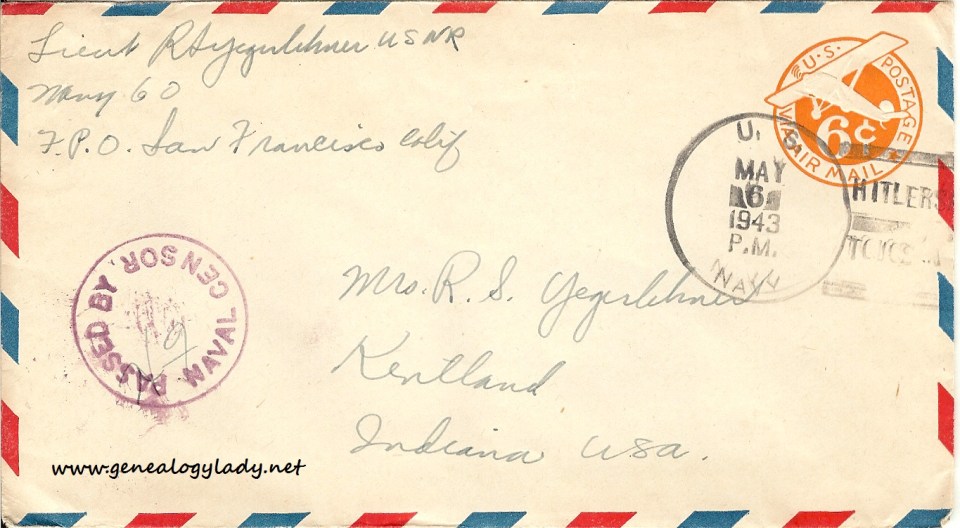 Lieut R S Yegerlehner USNR
Navy 60
F.P.O. San Francisco Calif
U.S. POSTAGE
6¢
VIA AIR MAIL
U. S.
MAY
6
1943
P.M.
NAVY
HITLERS
PASSED BY NAVAL CENSOR
Mrs. R. S. Yegerlehner
Kentland
Indiana USA.
www.genealogylady.net